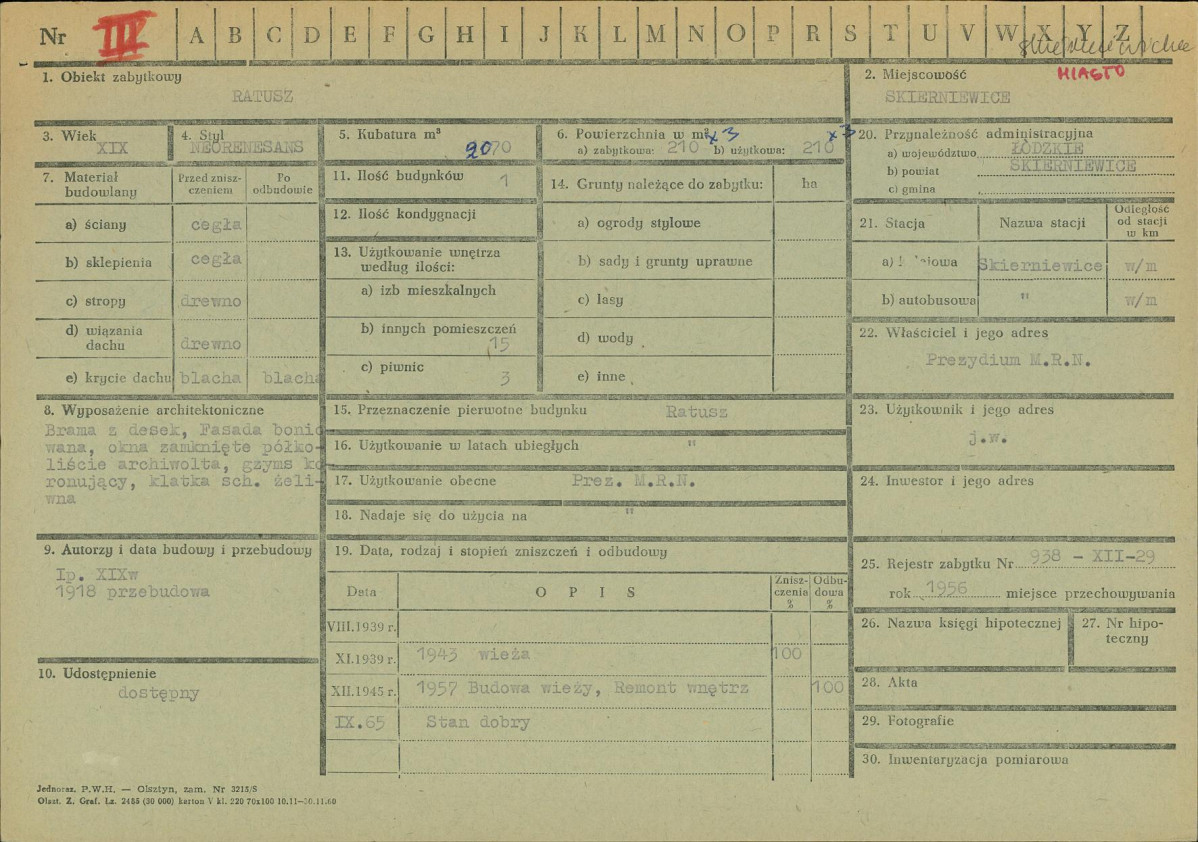 Nr III A B C D E F G H I J K L M N O P R S T U V W X Y Z
MIASTO
1. Obiekt zabytkowy
RATUSZ
2. Miejscowość
SKIERNIEWICE
3. Wiek
XIX
4. Styl
NEORENESANS
5. Kubatura m³
2070
6. Powierzchnia w m² x3 x3
a) zabytkowa: 210 b) użytkowa: 210
20. Przynależność administracyjna
a) województwo ŁÓDZKIE
b) powiat SKIERNIEWICE
c) gmina
7. Materiał budowlany
Przed znisz-czeniem
Po odbudowie
a) ściany cegła
b) sklepienia cegła
c) stropy drewno
d) wiązania dachu drewno
e) krycie dachu blacha blacha
11. Ilość budynków 1
12. Ilość kondygnacji
13. Użytkowanie wnętrza
według ilości:
a) izb mieszkalnych
b) innych pomieszczeń
15
c) piwnic 3
14. Grunty należące do zabytku: ha
a) ogrody stylowe
b) sady i grunty uprawne
c) lasy
d) wody
e) inne
21. Stacja Nazwa stacji Odległość od stacji w km
a) Skierniewice w/m
b) autobusowa " w/m
22. Właściciel i jego adres
Prezydium M.R.N.
8. Wyposażenie architektoniczne
Brama z desek, Fasada bonio
wana, okna zamknięte półko-
liście archiwolta, gzyms ko
ronujący, klatka sch. żeli-
wna
15. Przeznaczenie pierwotne budynku Ratusz
16. Użytkowanie w latach ubiegłych "
17. Użytkowanie obecne Prez. M.R.N.
18. Nadaje się do użycia na "
23. Użytkownik i jego adres
j.w.
24. Inwestor i jego adres
9. Autorzy i data budowy i przebudowy
Ip. XIXw
1918 przebudowa
10. Udostępnienie
dostępny
19. Data, rodzaj i stopień zniszczeń i odbudowy
Data OPIS Znisz-czenia % Odbu-dowa %
VIII.1939 r.
XI.1939 r. 1943 wieża 100
XII.1945 r. 1957 Budowa wieży, Remont wnętrz 100
IX.65 Stan dobry
25. Rejestr zabytku Nr 938 - XII-29
rok 1956 miejsce przechowywania
26. Nazwa księgi hipotecznej
27. Nr hipo-
teczny
28. Akta
29. Fotografie
30. Inwentaryzacja pomiarowa
Jednoraz. P.W.H. — Olsztyn, zam. Nr 3215/S
Olszt. Z. Graf. Lz. 2455 (30 000) karton V kl. 220 70x100 10.11—30.11.60